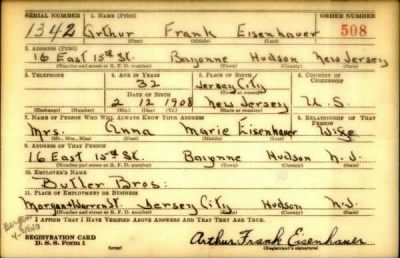 SERIAL NUMBER 1. NAME (Print) ORDER NUMBER
1342 Arthur Frank Eisenhauer 508
(First) (Middle) (Last)
2. ADDRESS (Print)
16 East 15th St. Bayonne Hudson New Jersey
(Number and street or R. F. D. number) (Town) (County) (State)
3. TELEPHONE 4. AGE IN YEARS 5. PLACE OF BIRTH 6. COUNTRY OF CITIZENSHIP
32 Jersey City
DATE OF BIRTH (Town or county)
2 12 1908 New Jersey U.S.
(Exchange) (Number) (Mo.) (Day) (Yr.) (State or country)
7. NAME OF PERSON WHO WILL ALWAYS KNOW YOUR ADDRESS 8. RELATIONSHIP OF THAT PERSON
Mrs. Anna Marie Eisenhauer Wife
(Mr., Mrs., Miss) (First) (Middle) (Last)
9. ADDRESS OF THAT PERSON
16 East 15th St. Bayonne Hudson N.J.
(Number and street or R. F. D. number) (Town) (County) (State)
10. EMPLOYER'S NAME
Butler Bros.
11. PLACE OF EMPLOYMENT OR BUSINESS
Morgan + Warren St. Jersey City Hudson N.J.
(Number and street or R. F. D. number) (Town) (County) (State)
I AFFIRM THAT I HAVE VERIFIED ABOVE ANSWERS AND THAT THEY ARE TRUE.
REGISTRATION CARD
D. S. S. Form 1 Arthur Frank Eisenhauer
(Registrant's signature)